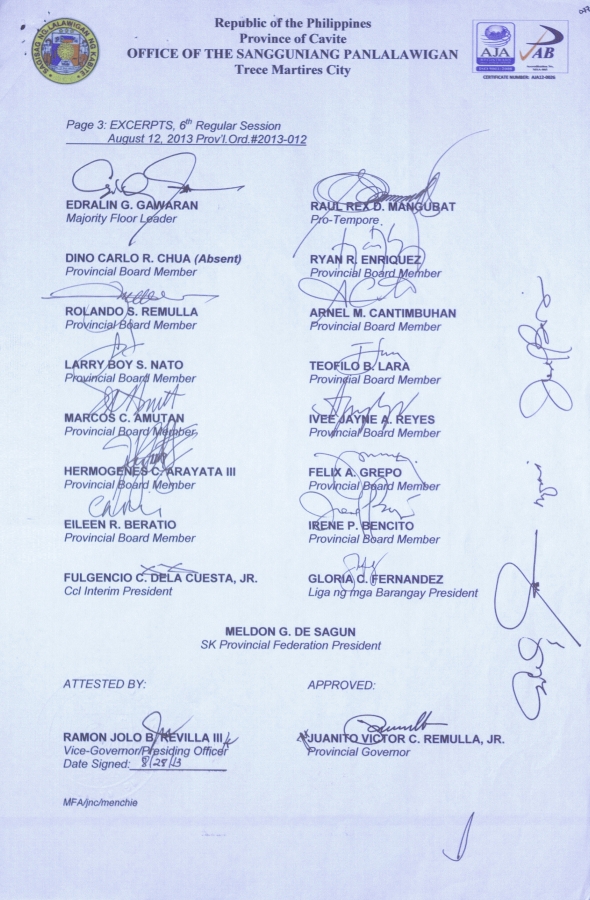 Republic of the Philippines
Province of Cavite
OFFICE OF THE SANGGUNIANG PANLALAWIGAN
Trece Martires City
AJA
JAB
CERTIFICATE NUMBER: AJA12-0026
Page 3: EXCERPTS, 6th Regular Session
August 12, 2013 Prov'l.Ord.#2013-012
EDRALIN G. GAWARAN
Majority Floor Leader
RAUL REX D. MANGUBAT
Pro-Tempore
DINO CARLO R. CHUA (Absent)
Provincial Board Member
RYAN R. ENRIQUEZ
Provincial Board Member
ROLANDO S. REMULLA
Provincial Board Member
ARNEL M. CANTIMBUHAN
Provincial Board Member
LARRY BOY S. NATO
Provincial Board Member
TEOFILO B. LARA
Provincial Board Member
MARCOS C. AMUTAN
Provincial Board Member
IVEE JAYNE A. REYES
Provincial Board Member
HERMOGENES C. ARAYATA III
Provincial Board Member
FELIX A. GREPO
Provincial Board Member
EILEEN R. BERATIO
Provincial Board Member
IRENE P. BENCITO
Provincial Board Member
FULGENCIO C. DELA CUESTA, JR.
Ccl Interim President
GLORIA C. FERNANDEZ
Liga ng mga Barangay President
MELDON G. DE SAGUN
SK Provincial Federation President
ATTESTED BY:
APPROVED:
RAMON JOLO B. REVILLA III
Vice-Governor/Presiding Officer
Date Signed: 8/28/13
JUANITO VICTOR C. REMULLA, JR.
Provincial Governor
MFA/jnc/menchie